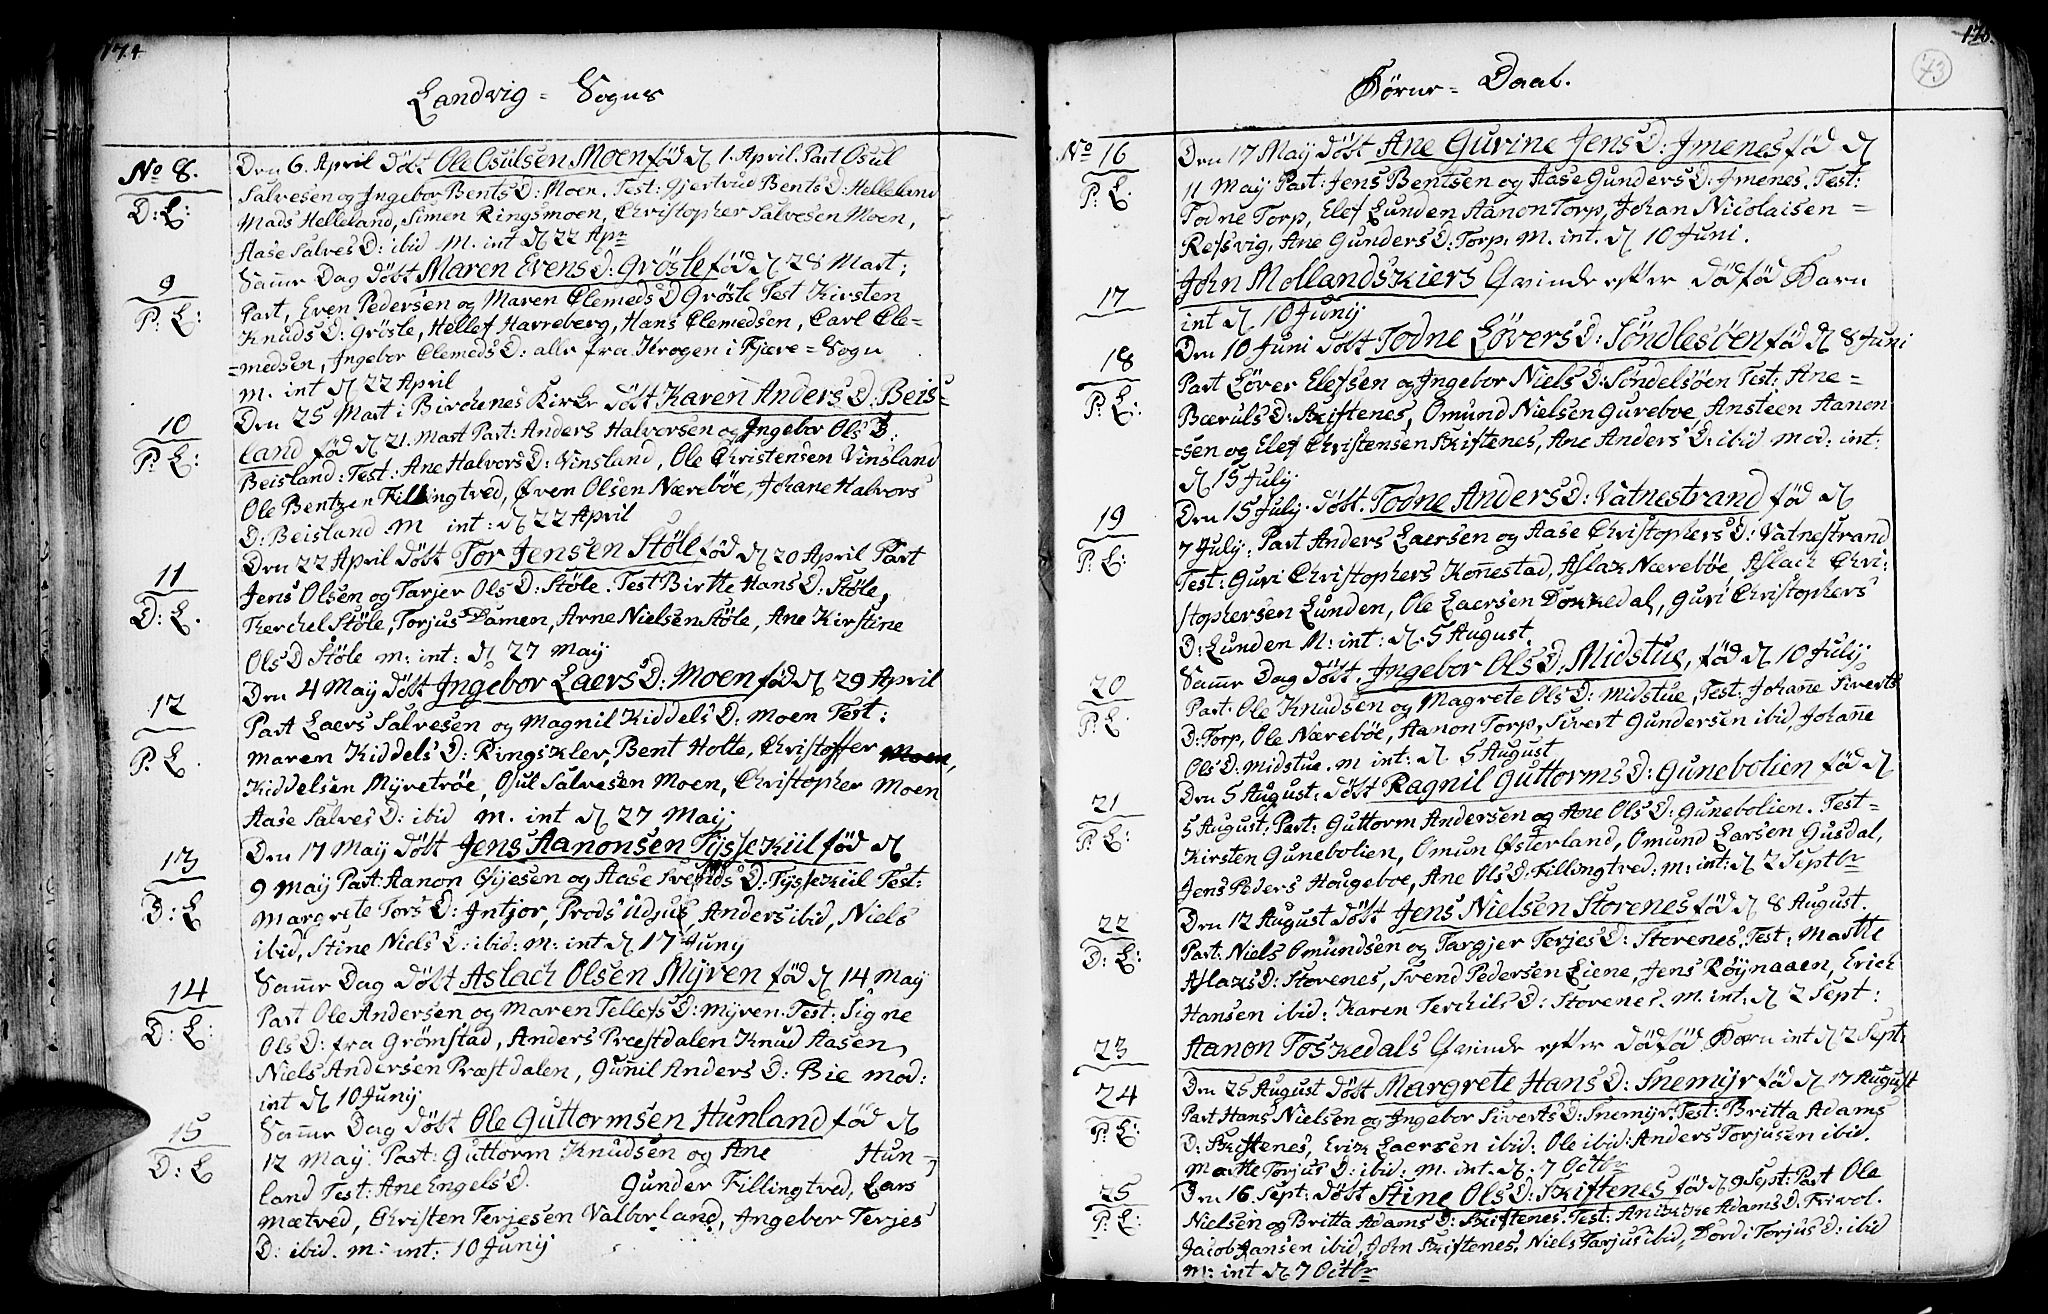 174
Landvig = Sogns
No 8.
D: L:
Den 6. April döbt Ole Osulsen Moen föd d 1. April. Part Osul
Salvesen og Ingebor Bents D: Moen. Test: Gjertrud Bents D: Helleland
Mads Helleland, Simen Ringsmoen, Christopher Salvesen Moen,
Aase Salves D: ibid M. int d 22 Apr
9
P: L:
Samme Dag döbt Maren Evens D: Gröste föd d 28 Mart;
Part, Even Pedersen og Maren Clemeds D Gröste Test Kirsten
Knuds D: Gröste, Hellef Harreberg, Hans Clemedsen, Carl Cle=
=medsen, Ingebor Clemeds D: alle fra Krogen i Fjære=Sogn
m. int d 22 April
10
P: L:
Den 25 Mart i Birchenes Kirke döbt Karen Anders D: Beis=
land föd d 21. Mart Part: Anders Halvorsen og Ingebor Ols D:
Beisland: Test: Ane Halvors D: Vinsland, Ole Christensen Vinsland
Ole Bentzen Fillingtved, Even Olsen Næreböe, Johane Halvors
D: Beisland m int: d 22 April
11
D: L.
Den 22 April döbt Tor Jensen Stöle föd d 20 April Part
Jens Olsen og Tarjer Ols D: Stöle. Test Birtte Hans D: Stöle,
Kerchel Stöle, Torjus Damen, Arne Nielsen Stöle, Ane Kirstine
Ols D Stöle m: int: d 27 May
12
P. L.
Den 4 May döbt Ingebor Laers D: Moen föd d 29 April
Part Laers Salvesen og Magnil Kiddels D: Moen Test:
Maren Kiddels D: Ringsklev, Bent Holte, Christoffer Moen,
Kiddelsen Myretröe, Osul Salvesen Moen, Christopher Moen
Aase Salves D: ibid m. int d 27 May
13
D: L
Den 17 May döbt Jens Aanonsen Tyssekiil föd d
9 May Part: Aanon Gjesen og Aase Svends D: Tyssekiil Test:
Margrete Tors D: Intjor, Prods Udjus, Anders ibid, Niels
ibid, Stine Niels D: ibid: m: int d 17 Juny
14
D: L:
Samme Dag döbt Aslach Olsen Myren föd d 14 May
Part Ole Andersen og Maren Tellefs D: Myren. Test: Signe
Ols D: fra Grömstad, Anders Præstdalen Knud Aasen,
Niels Andersen Præstdalen, Gunil Anders D: Bie mod:
int d 10 Junij
15
D: L
Samme Dag döbt Ole Guttormsen Hunland föd d
12 May. Part: Guttorm Knudsen og Ane Hun=
land Test: Ane Engels D. Gunder Fillingtved, Lars
Mætved, Christen Terjesen Valborland, Ingebor Terjes
D: ibid. m: int: 10 Junij
175.
73
Börne = Daab.
No 16
P: L:
Den 17 May döbt Ane Gurine Jens D: Imenes föd d
11 May Part: Jens Bentsen og Aase Gunders D: Imenes. Test:
Todne Torp, Elef Lunden Aanon Torp, Johan Nicolaisen =
Refsvig, Ane Gunders D: Torp: m. int. d 10 Juni.
17
John Mollandskiers Qvinde efter dödföd Barn
int d 10 Junij
18
P: L:
Den 10 Juni döbt Todne Lövers D: Söndlesöen föd d 8 Juni
Part Löver Elefsen og Ingebor Niels D: Söndelsöen Test: Ane=
Bæruls D: Skiftenes, Omund Nielsen Gureboe Ansteen Aanon
=sen og Elef Christensen Skiftenes, Ane Anders D: ibid mod: int:
d 15 July
19
P: L:
Den 15 July. döbt. Todne Anders D: Vatnestrand föd d
7 July. Part Anders Laersen og Aase Christophers D: Vatnestrand
Test: Guri Christophers Konnestad, Aslax Næreböe Aslach Chri:
stophersen Lunden, Ole Laersen Dokkedal, Guri Christophers
D: Lunden M: int: d. 5 August.
20
P: L:
Samme Dag döbt. Ingebor Ols D. Midstue, föd d 10 July
Part: Ole Knudsen og Magrete Ols D: Midstue, Test: Johanne Siverts
D: Torp, Ole Næreböe, Aanon Torp, Sivert Gundersen ibid, Johanne
Ols D: Midstue. m int: d 5 August
21
P: L:
Den 5 August: döbt Ragnil Guttorms D: Gunebolien föd d
5 August: Part: Guttorm Andersen og Ane Ols D: Gunebolien. Test=
Kirsten Gunebolien, Omun Østerland, Omund Larsen Gusdal,
Jens Peders Hougeboe, Ane Ols D: Fillingtved: m: int: d 2 Septbr
22
D: L:
Den 12 August döbt Jens Nielsen Storenes föd d 8 August.
Part: Niels Omundsen og Targjer Terjes D: Storenes. Test: Martte
Aslaxs D: Storenes, Svend Pedersen Liene, Jens Röynaaen, Erich
Hansen ibid: Karen Terchils D: Storenes. m. int: d 2 Sept:
23
Aanon Toskedals Qvinde efter dödföd Barn int d 2 Sept:
24
P: L:
Den 25 August döbt Margrete Hans D: Snemyr föd d 17 August
Part Hans Nielsen og Ingebor Siverts D: Snemyr. Test: Britta Adams
D: Skiftenes, Erik Laersen ibid: Ole ibid: Anders Torjusen ibid.
Martte Torjus D: ibid: m. int. d. 7 Octbr
25
P: L:
Den 16. Sept: döbt Stine Ols D: Skiftenes föd d 9 Sept: Part Ole
Nielsen og Britta Adams D: Skiftenes. Test: Anikke Adams D: Frivol.
Jacob Hansen ibid, John Skiftenes, Niels Tarjus ibid, Dordi Torjus D: ibid
m: int d 7 Octbr